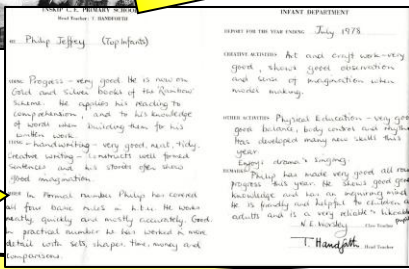 INSKIP C.E. PRIMARY SCHOOL
Head Teacher : T. HANDFORTH
Philip Jeffrey (Top Infants)
Progress - very good. He is now on
Gold and Silver books of the 'Rainbow'
Scheme. He applies his reading to
comprehension, and to his knowledge
of words when building them for his
written work.
- handwriting - very good, neat, tidy.
Creative writing - Constructs well formed
sentences and his stories often show
good imagination.
In Formal number Philip has covered
all four basic rules in h.t.u. He works
neatly, quickly and mostly accurately. Good.
In practical number he has worked in more
detail with sets, shapes, time, money and
comparisons.
INFANT DEPARTMENT
REPORT FOR THE YEAR ENDING July 1973
CREATIVE ACTIVITIES Art and craft work - very
good, shows good observation
and sense of imagination when
model making.
OTHER ACTIVITIES Physical Education - very good
good balance, body control and rhythm
Has developed many new skills this
year.
Enjoys drama & singing.
REMARKS Philip has made very good all round
progress this year. He shows good general
knowledge and has an inquiring mind.
He is friendly and helpful to children and
adults and is a very reliable & likeable
pupil
Class Teacher
T. Handforth Head Teacher